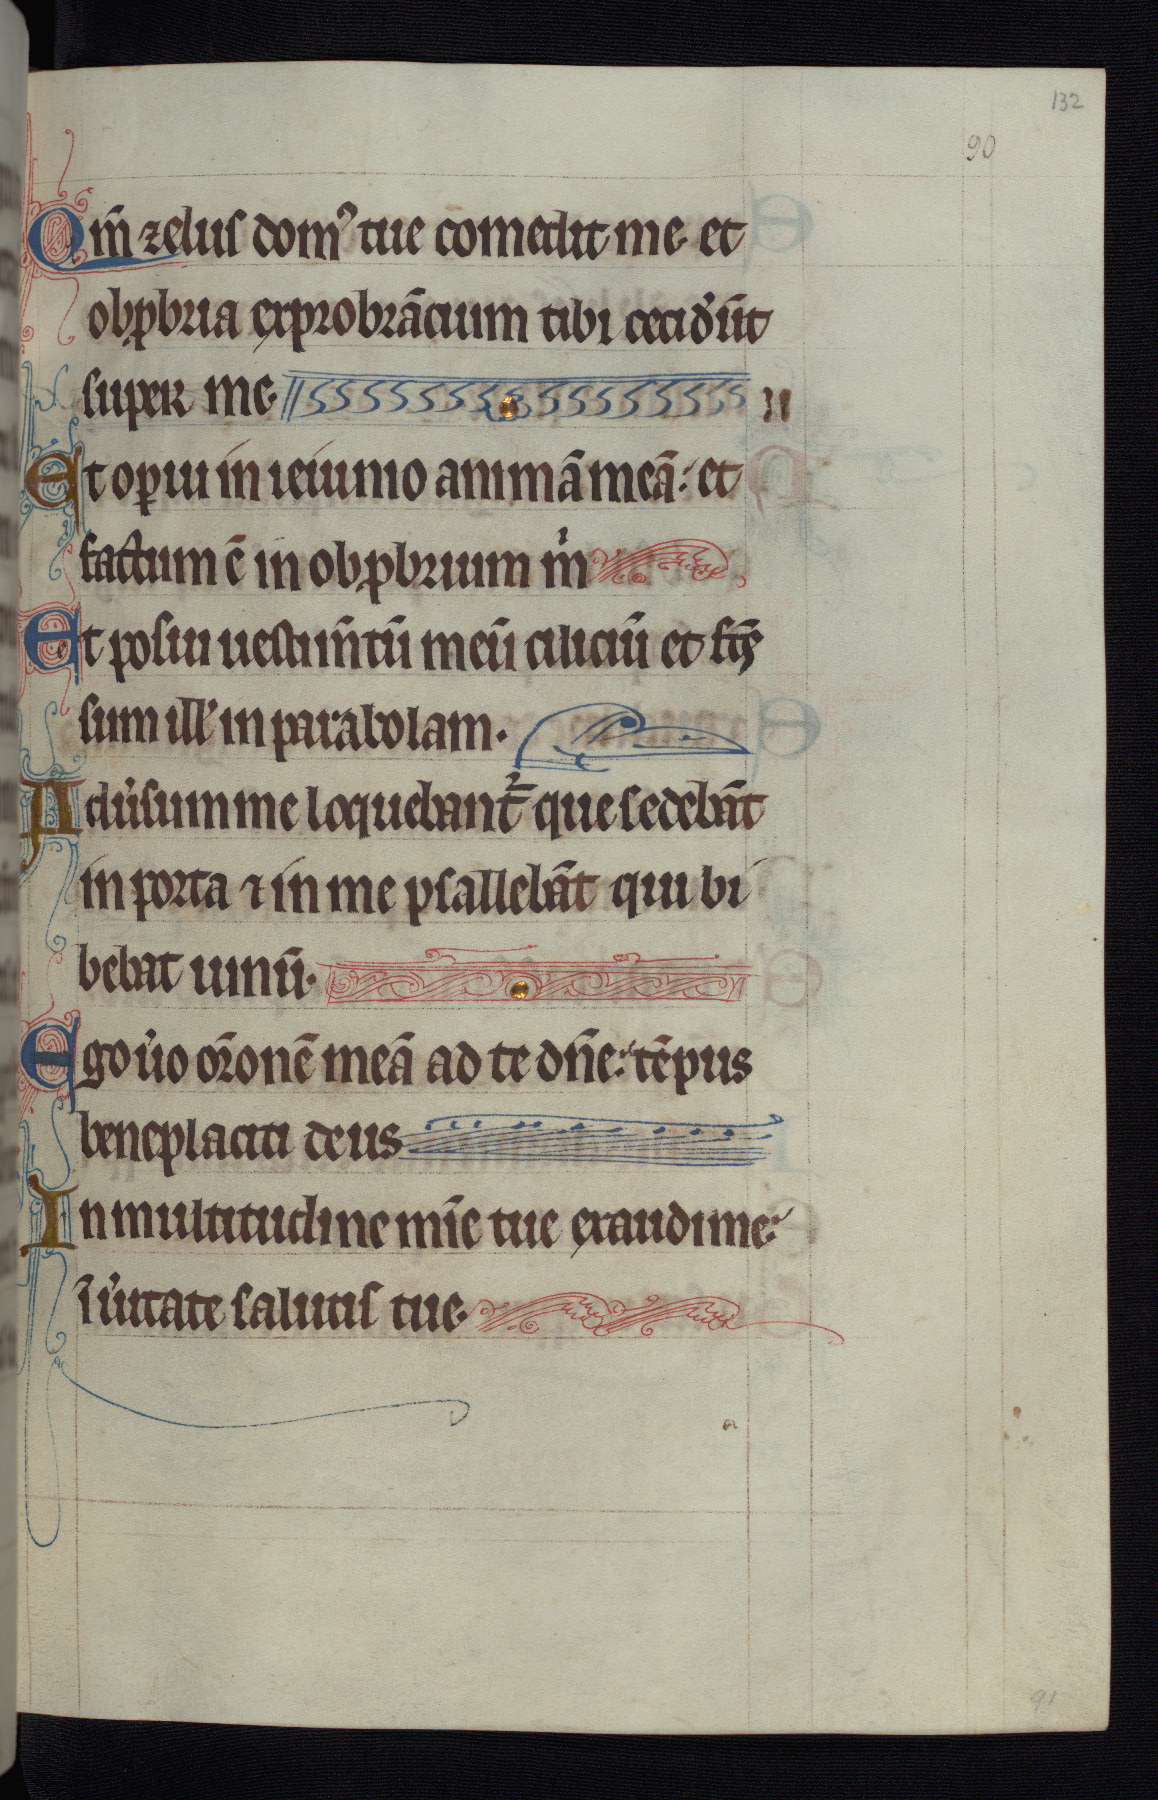 132
90
Qm̄ zelus dom᷒ tue comedit me. et
obꝓbria exprobrācium tibi cecid̉ūt
super me.
Et oꝑui in ieiunio animā meā: et
factum ē in obꝓbrium m̉
Et posui uestim̄tū meū ciliciū et fcs̄
sum ill̉ in parabolam.
Adu̓sum me loquebant᷑ que sedebāt
in porta ⁊ in me psallebāt qui bi
bebāt uinū.
Ego u̓o or̄onē meā ad te dn̄e: tēpus
beneplaciti deus
In multitudine mīe tue exaudi me:
ī u̓itate salutis tue.
91